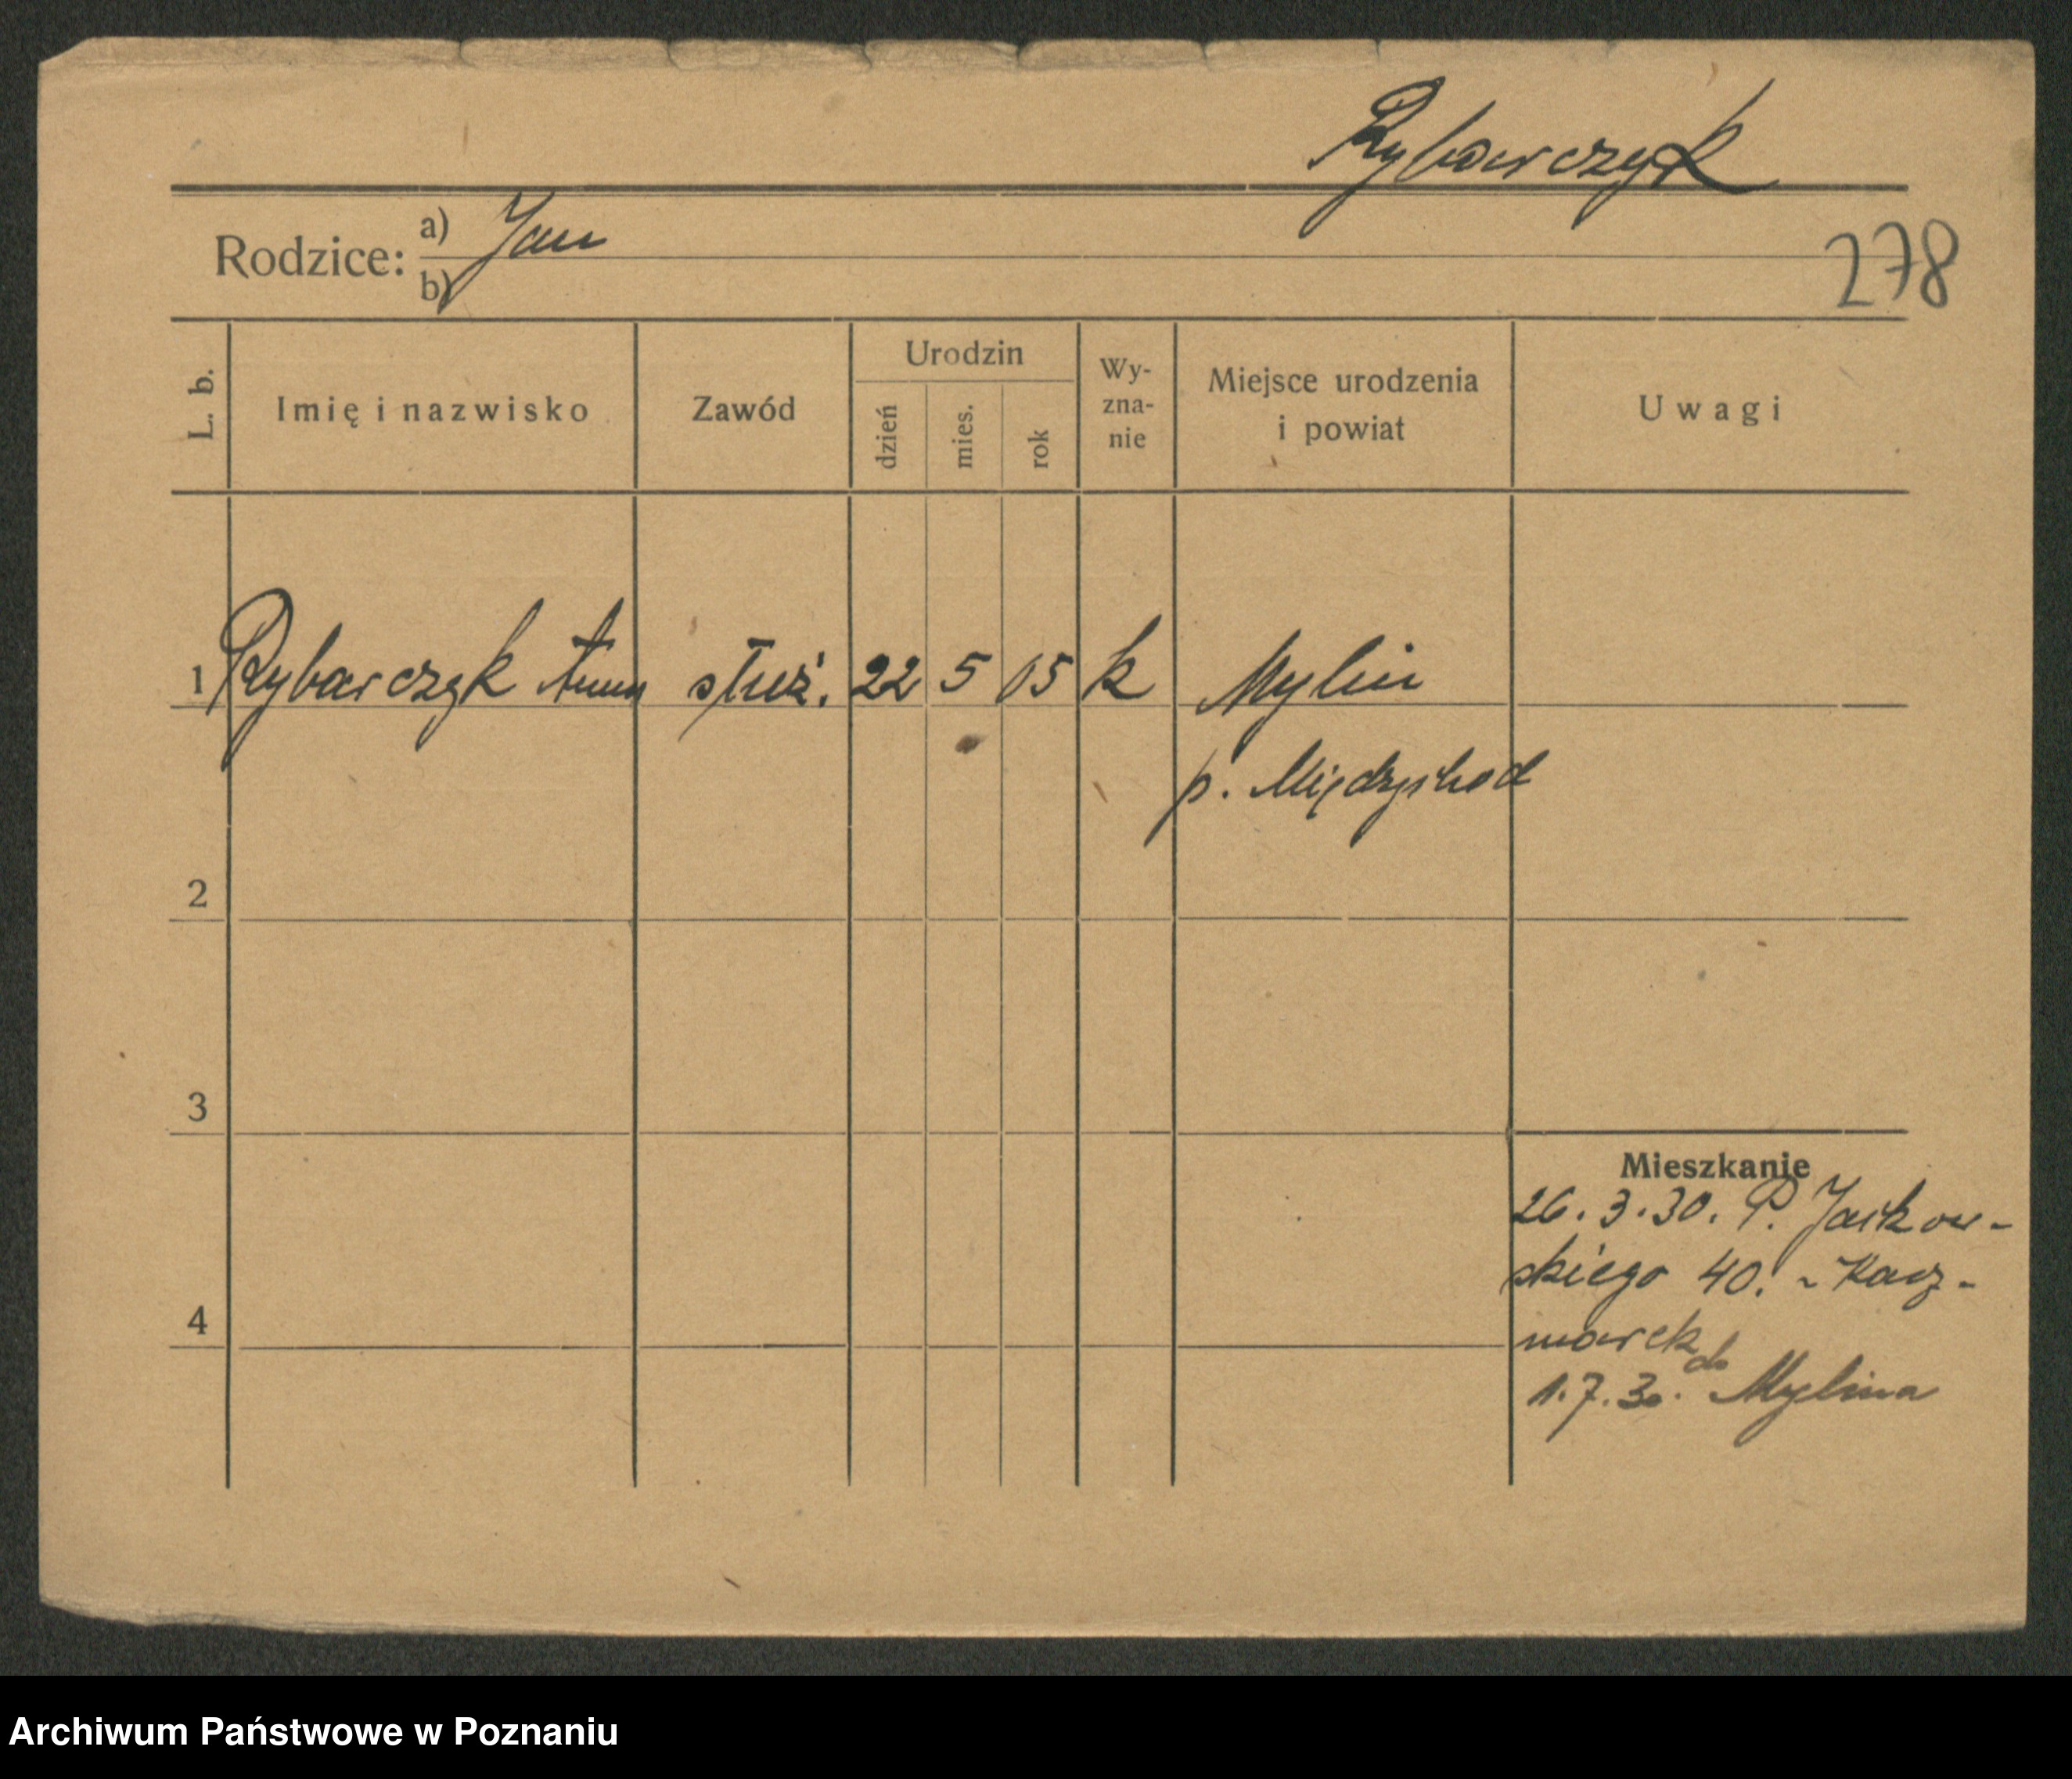 Rybarczyk
Rodzice: a) Jan
b)
278
L. b.
Imię i nazwisko
Zawód
Urodzin
dzień
mies.
rok
Wy-
zna-
nie
Miejsce urodzenia
i powiat
Uwagi
1 Rybarczyk Anna służ. 22 5 05 k Mylin
p. Międzychod
2
3
4
Mieszkanie
26.3.30. P. Jackow-
skiego 40. - Kacz-
marek
1.7.30. do Mylina
Archiwum Państwowe w Poznaniu